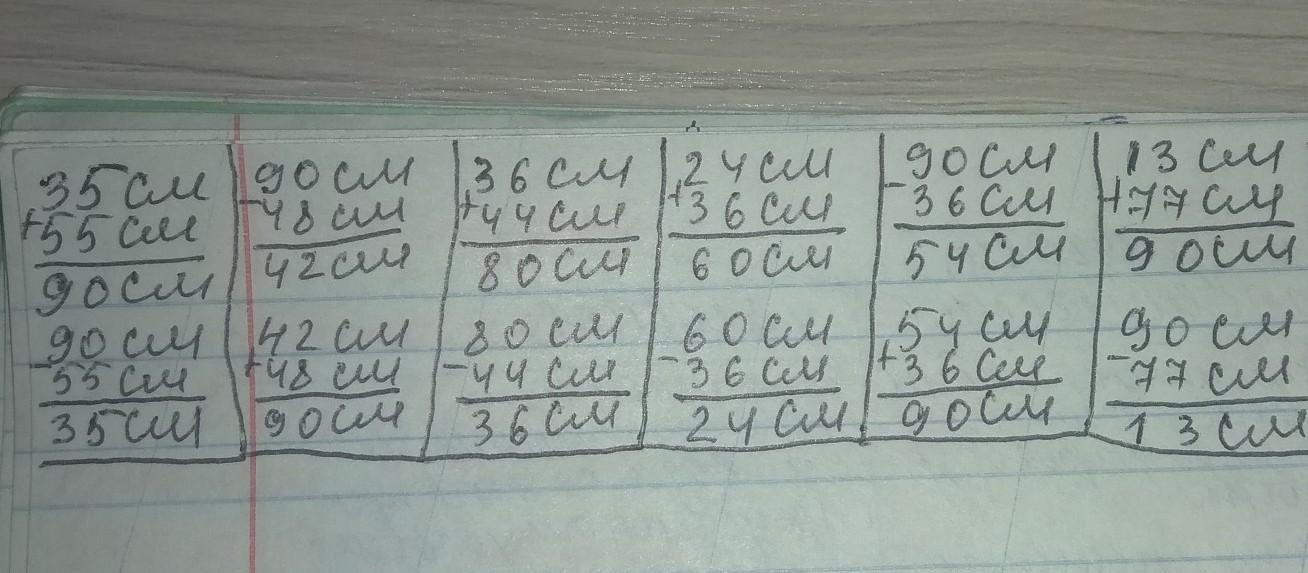 35 см
+55 см
90 см
90 см
-55 см
35 см
90 см
-48 см
42 см
42 см
+48 см
90 см
36 см
+44 см
80 см
80 см
-44 см
36 см
24 см
+36 см
60 см
60 см
-36 см
24 см
90 см
-36 см
54 см
54 см
+36 см
90 см
13 см
+77 см
90 см
90 см
-77 см
13 см